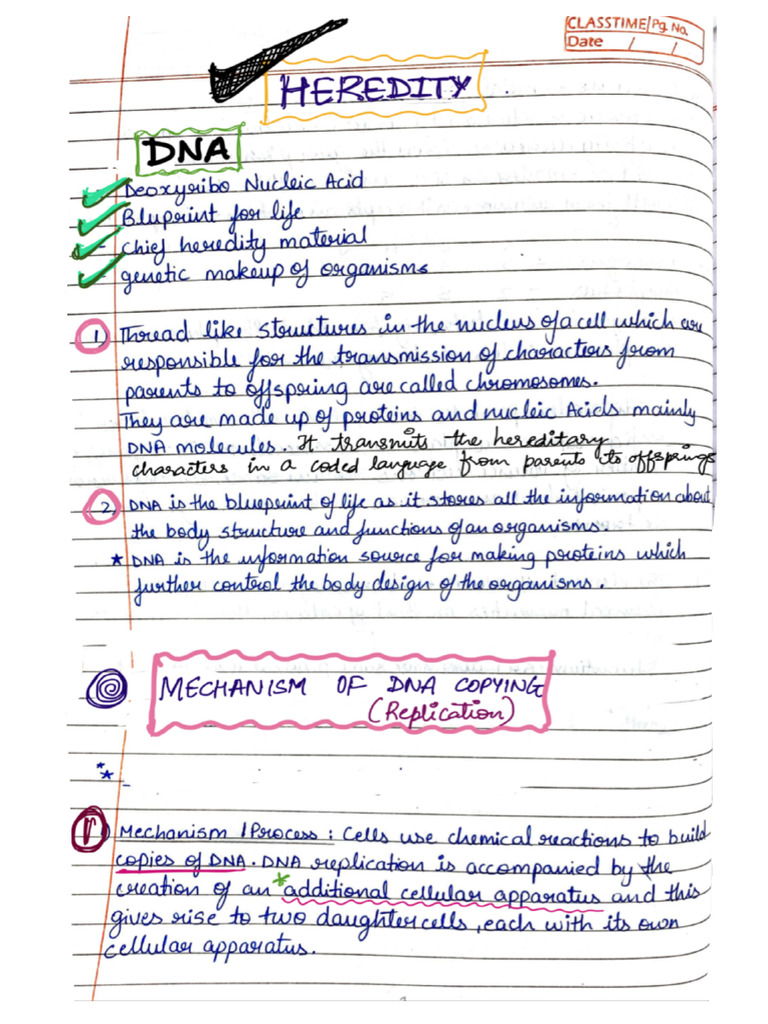 CLASSTIME Pg. No.
Date / /
HEREDITY
DNA
Deoxyribo Nucleic Acid
Bluprint for life
chief heredity material
genetic makeup of organisms
1) Thread like structures in the nucleus of a cell which are
responsible for the transmission of characters from
parents to offspring are called chromosomes.
They are made up of proteins and nucleic Acids mainly
DNA molecules. It transmits the hereditary
characters in a coded language from parents to offsprings
2) DNA is the blueprint of life as it stores all the information about
the body structure and functions of an organisms.
* DNA is the information source for making proteins which
further control the body design of the organisms.
MECHANISM OF DNA COPYING
(Replication)
Mechanism / Process : Cells use chemical reactions to build
copies of DNA. DNA replication is accompanied by the
creation of an *additional cellular apparatus and this
gives rise to two daughter cells, each with its own
cellular apparatus.